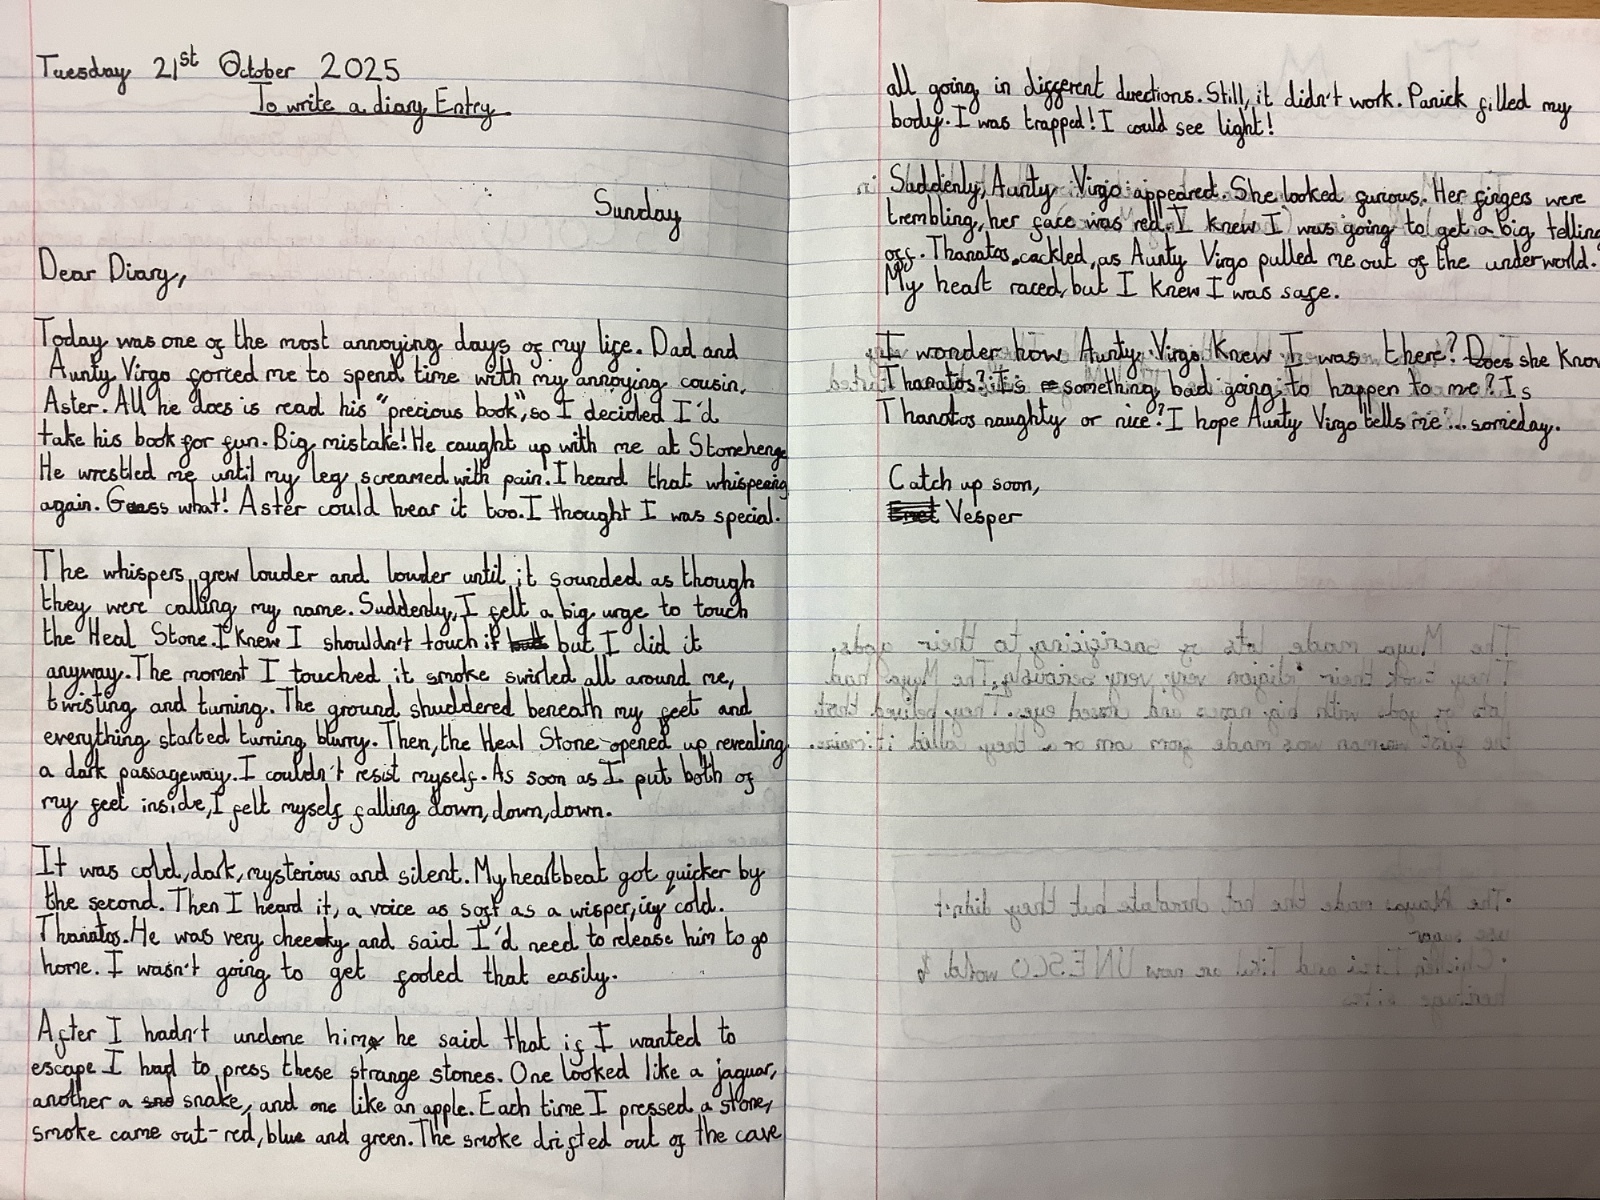 Tuesday 21st October 2025
To write a diary Entry
Sunday
Dear Diary,
Today was one of the most annoying days of my life. Dad and
Aunty Virgo forced me to spend time with my annoying cousin,
Aster. All he does is read his "precious book", so I decided I'd
take his book for fun. Big mistake! He caught up with me at Stonehenge
He wrestled me until my leg screamed with pain! I heard that whispering
again. Guess what! Aster could hear it too. I thought I was special.
The whispers grew louder and louder until it sounded as though
they were calling my name. Suddenly, I felt a big urge to touch
the Heal Stone. I knew I shouldn't touch it but I did it
anyway. The moment I touched it smoke swirled all around me,
twisting and turning. The ground shuddered beneath my feet and
everything started turning blurry. Then, the Heal Stone opened up revealing
a dark passageway. I couldn't resist myself. As soon as I put both of
my feet inside, I felt myself falling down, down, down.
It was cold, dark, mysterious and silent. My heartbeat got quicker by
the second. Then I heard it, a voice as soft as a wisper, icy cold.
Thanatos. He was very cheeky and said I'd need to release him to go
home. I wasn't going to get fooled that easily.
After I hadn't undone him he said that if I wanted to
escape I had to press these strange stones. One looked like a jaguar,
another a snake, and one like an apple. Each time I pressed a stone,
smoke came out- red, blue and green. The smoke drifted out of the cave
all going in different directions. Still, it didn't work. Panick filled my
body. I was trapped! I could see light!
Suddenly, Aunty Virgo appeared. She looked furious. Her fingers were
trembling, her face was red. I knew I was going to get a big telling
off. Thanatos cackled, as Aunty Virgo pulled me out of the underworld.
My heart raced, but I knew I was safe.
I wonder how Aunty Virgo knew I was there? Does she know
Thanatos? Is something bad going to happen to me? Is
Thanatos naughty or nice? I hope Aunty Virgo tells me... someday.
Catch up soon,
Vesper